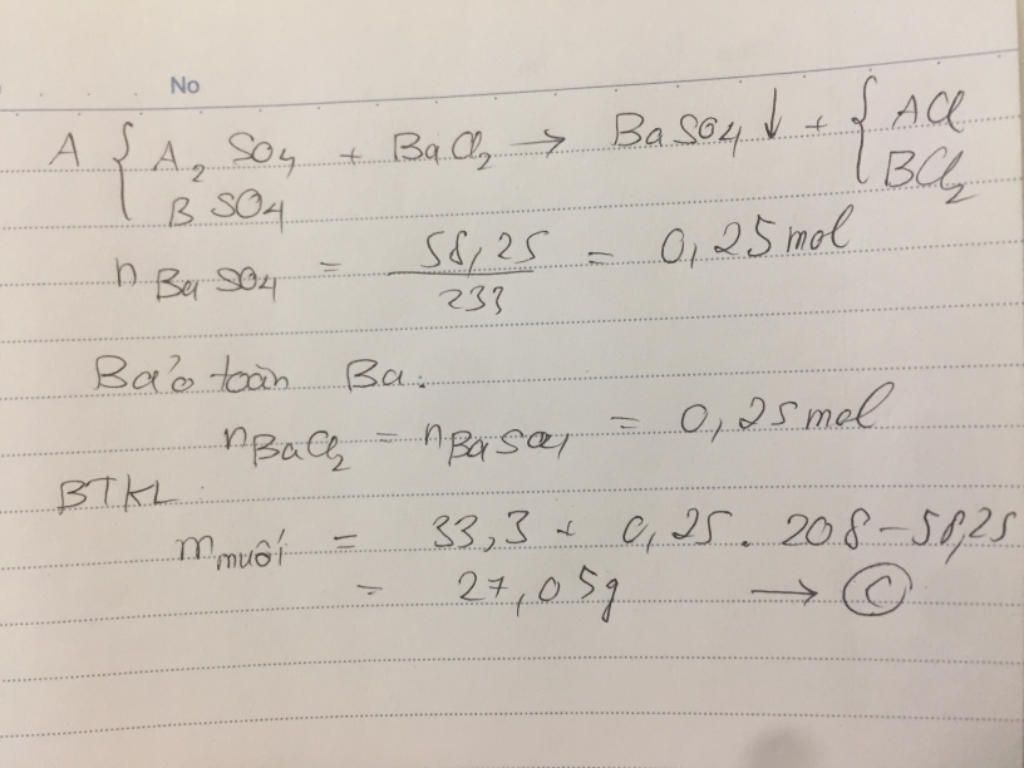 No
A { A₂ SO₄ + BaCl₂ → BaSO₄ ↓ + { ACl
B SO₄ BCl₂
n BaSO₄ = 58,25 / 233 = 0,25 mol
Bảo toàn Ba:
nBaCl₂ = nBaSO₄ = 0,25 mol
BTKL
m muối = 33,3 + 0,25 . 208 - 58,25
= 27,05g → C